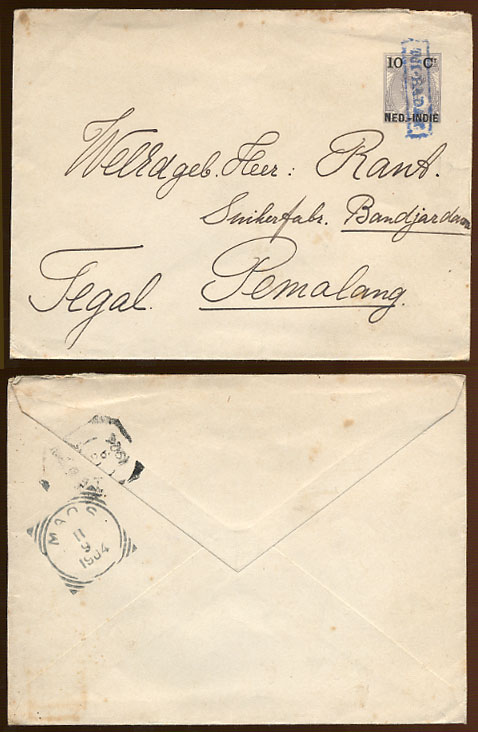 10 Ct
NED.-INDIË
WelEdgeb. Heer: Rant.
Suikerfabr. Bandjardawa
Tegal. Pemalang.
11
9
1904